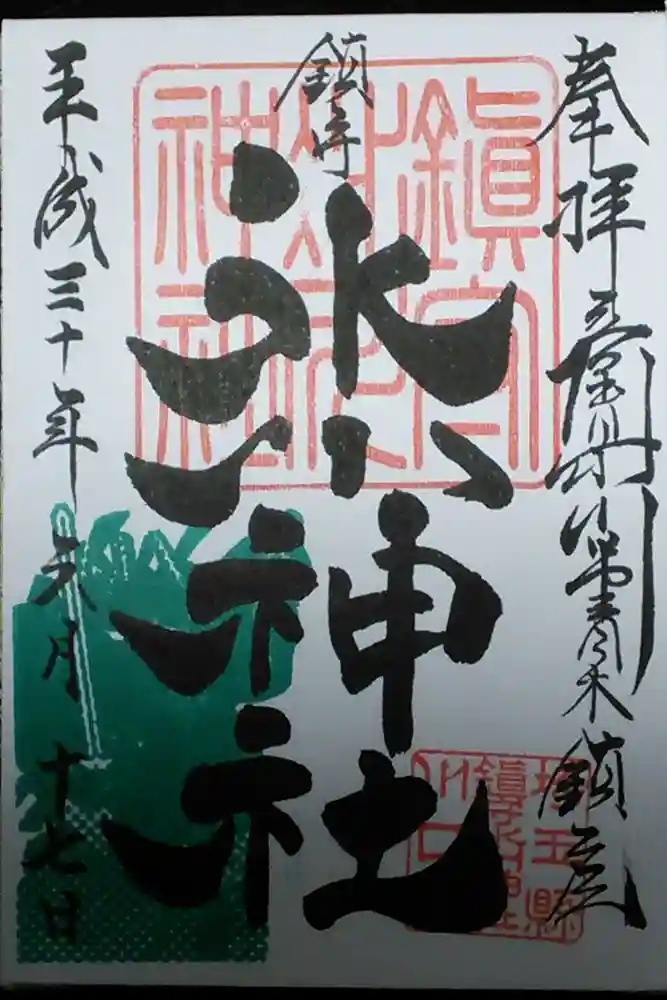 奉拝
青木鎮座
鎮守
氷川神社
平成三十年六月十七日
鎮守
氷川
神社
埼玉縣
鎮守氷川神社
川口